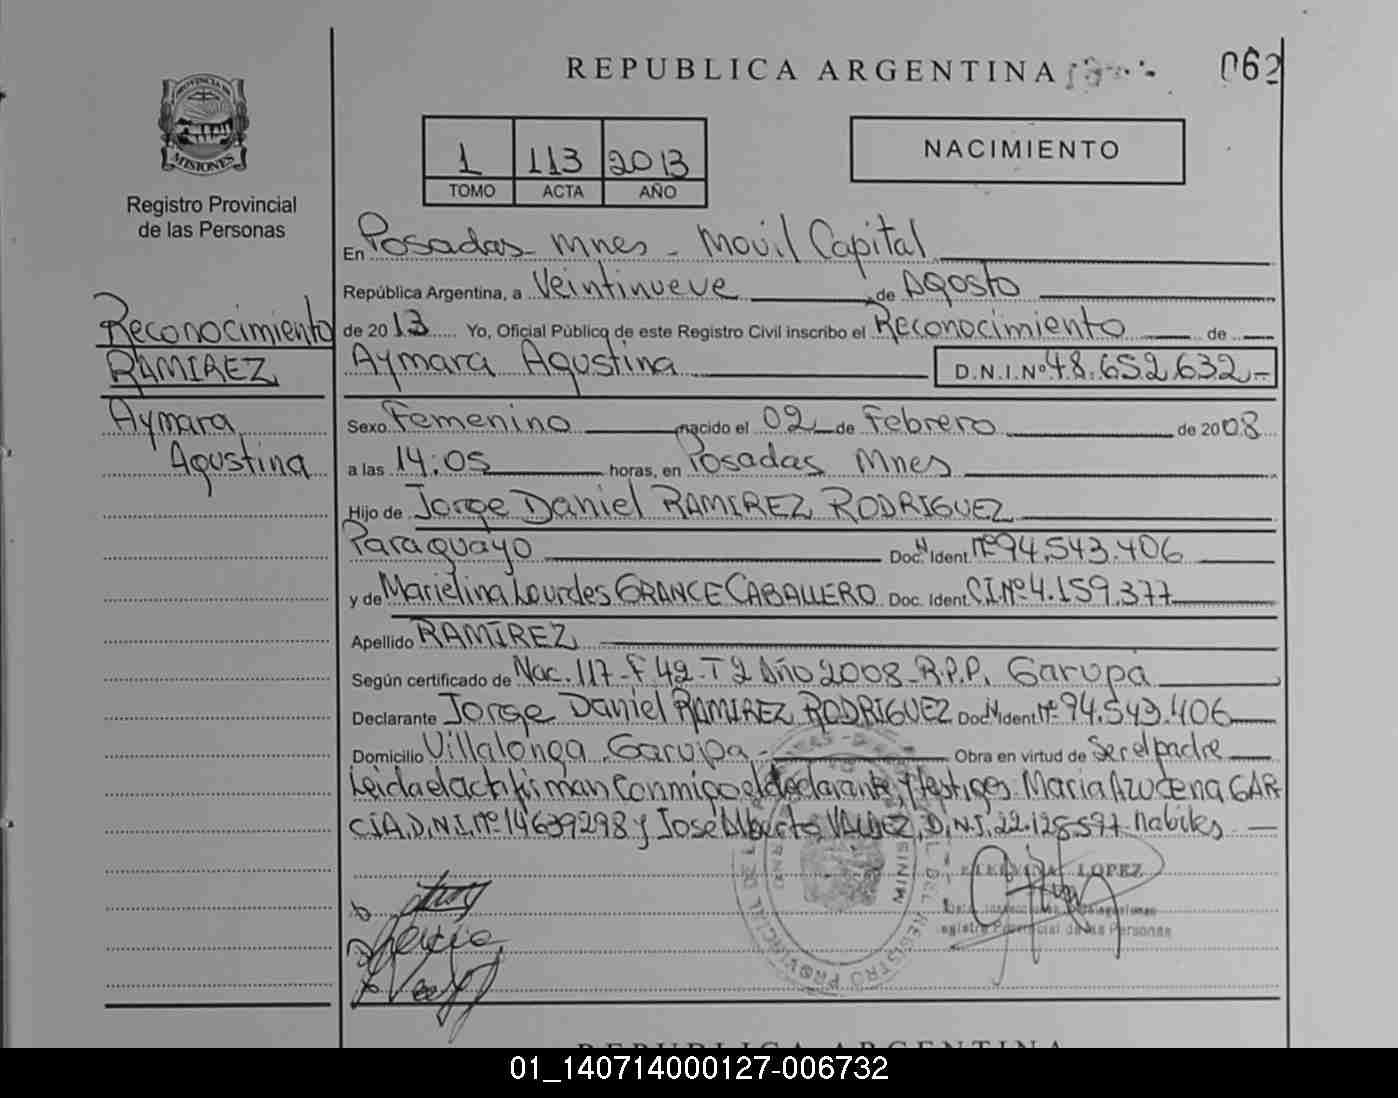 REPUBLICA ARGENTINA
062
PROVINCIA DE
MISIONES
Registro Provincial
de las Personas
1 113 2013
TOMO ACTA AÑO
NACIMIENTO
En Posadas - Mnes - Movil Capital
República Argentina, a Veintinueve de Agosto
Reconocimiento
de 2013 Yo, Oficial Público de este Registro Civil inscribo el Reconocimiento de
RAMIREZ
Aymara Agustina D.N.I.Nº 48.652.632.-
Aymara
Agustina
Sexo Femenino nacido el 02 de Febrero de 2008
a las 14:05 horas, en Posadas Mnes
Hijo de Jorge Daniel RAMIREZ RODRIGUEZ
Paraguayo Doc. N Ident. Nº 94.543.406
y de Marielina Lourdes GRANCE CABALLERO Doc. Ident. C.I.Nº 4.159.377
Apellido RAMÍREZ
Según certificado de Nac. 117 - F 42 - T 2 Año 2008 - R.P.P. Garupa
Declarante Jorge Daniel RAMIREZ RODRIGUEZ Doc N Ident Nº 94.543.406
Domicilio Villalonga Garupa - Obra en virtud de Ser el padre
Leida el acta firman Conmigo el declarante y testigos Maria Azucena GAR
CIA. D.N.I. Nº 14639298 y Jose Alberto VALDEZ, D.N.I. 22.128.597 habiles
LOPEZ
Registro Provincial de las Personas
REPUBLICA ARGENTINA
01_140714000127-006732